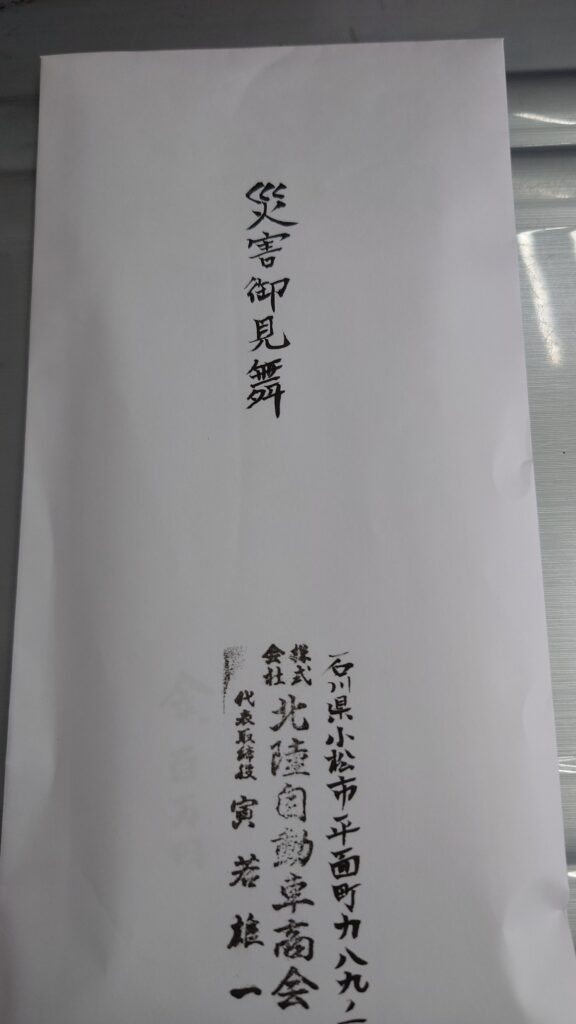 災害御見舞
石川県小松市平面町カ八九ノ一
株式会社 北陸自動車商会
代表取締役 寅若雄一